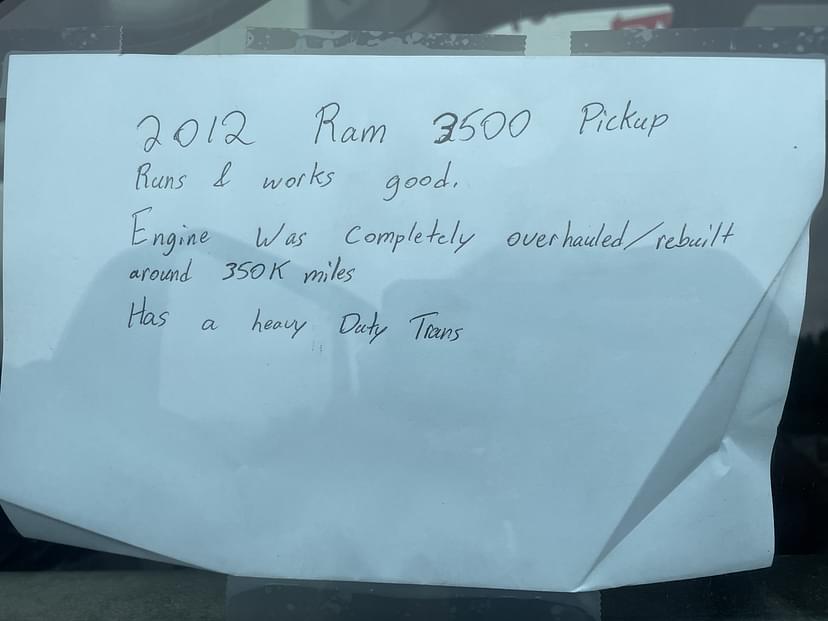 2012 Ram 3500 Pickup
Runs & works good.
Engine Was Completely overhauled/rebuilt
around 350K miles
Has a heavy Duty Trans